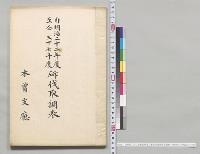 自明治二十二年度
至仝 三十七年度
斫伐取調表
木曽支廳